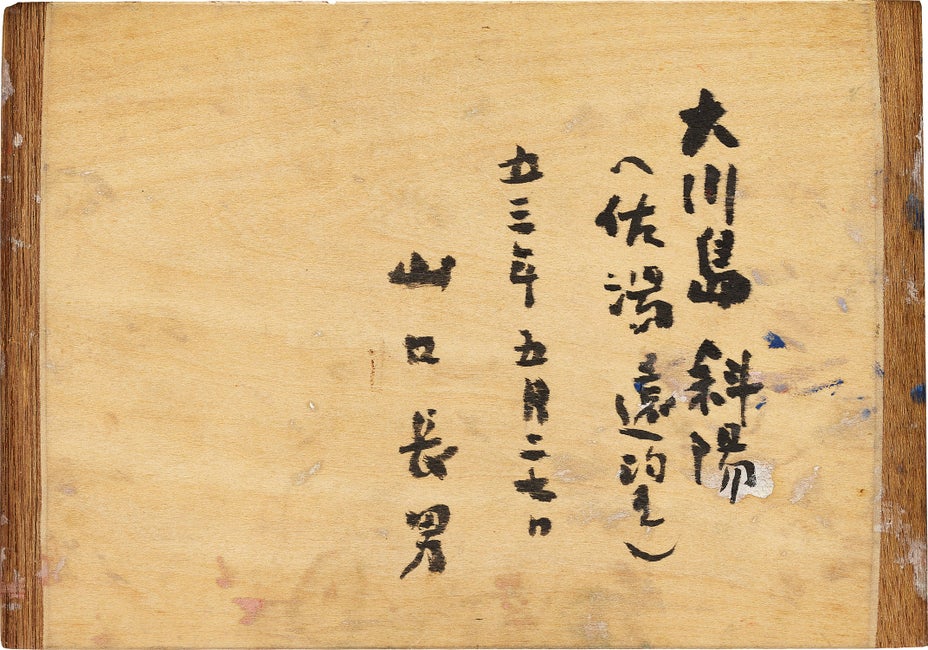 大川島 斜陽
(佐湯遠望)
五三年五月二七日
山口長男